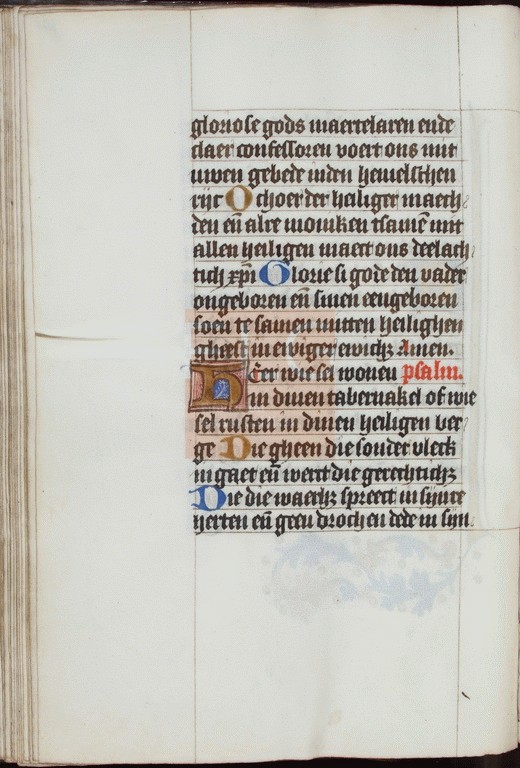 gloriose gods maertelaren ende
claer confessoren voert ons mit
uwen gebede inden hemelschen
rijc O choer der heiliger maech
den eñ alre moniken tsamē mit
allen heiligen maect ons deelach
tich xp̄i Glorie si gode den vader
ongeboren eñ sinen eengeboren
soen te samen mitten heilighen
gheest in ewiger ewichz Amen.
HEer wie sel wonen psalm.
in dinen tabernakel of wie
sel rusten in dinen heiligen ber
ge Die gheen die sonder vleck
in gaet eñ werct die gerechtichz
Die die waerhz spreect in sijnre
herten eñ geen drochen dede in sijn